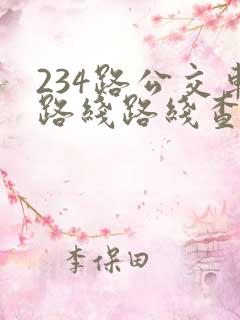 234路公交车
路线路线查
李保田